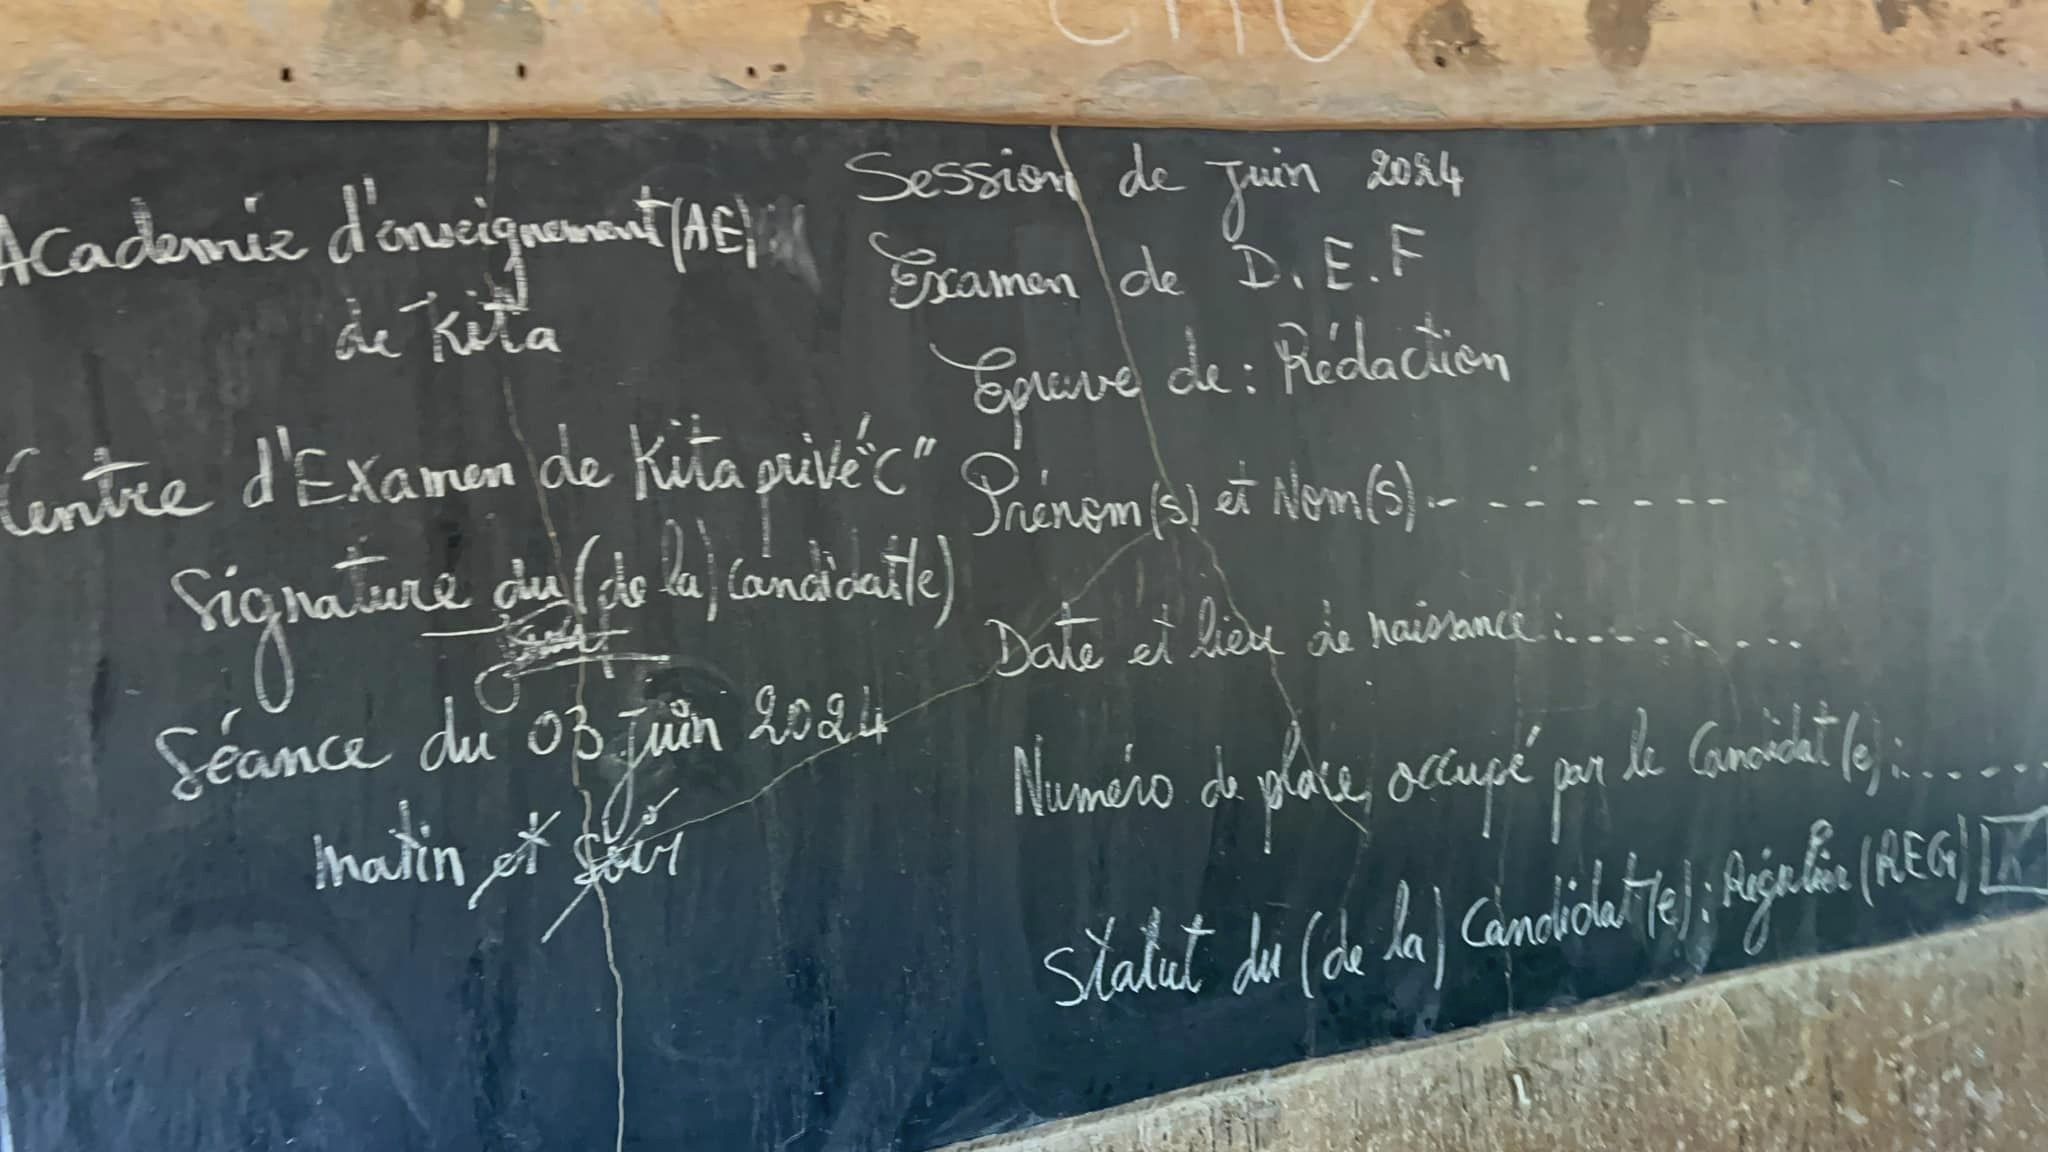 Academie d'enseignement (AE)
de Kita
Centre d'Examen de Kita privé "C"
Signature du (de la) candidat(e)
Séance du 03 juin 2024
matin et soir
Session de juin 2024
Examen de D.E.F
Epreuve de : Rédaction
Prénom(s) et Nom(s) :- - - - - - -
Date et lieu de naissance :.........
Numéro de place occupé par le Candidat(e) :......
Statut du (de la) Candidat(e) : Régulier (REG) X